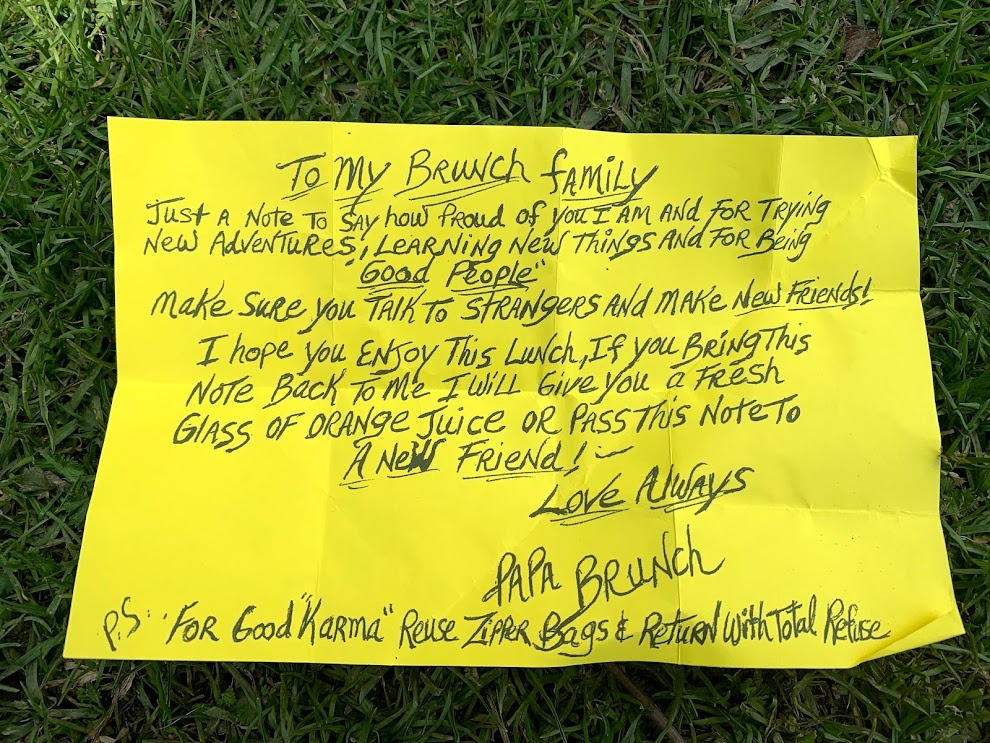 To My Brunch family
Just A Note To Say how Proud of you I AM AND FOR TRYING
New Adventures, LEARNING New Things AND FOR Being
"Good People"
Make Sure you TALK To STRANGERS AND MAKE New FRIENDS!
I hope you ENJOY This Lunch, If you BRING This
Note Back To Me I Will Give you a Fresh
Glass of ORANGE Juice OR PASS This Note To
A New FRIEND!
Love Always
PAPA BRUNCH
P.S. FOR Good "Karma" Reuse Zipper Bags & Return With Total Refuse